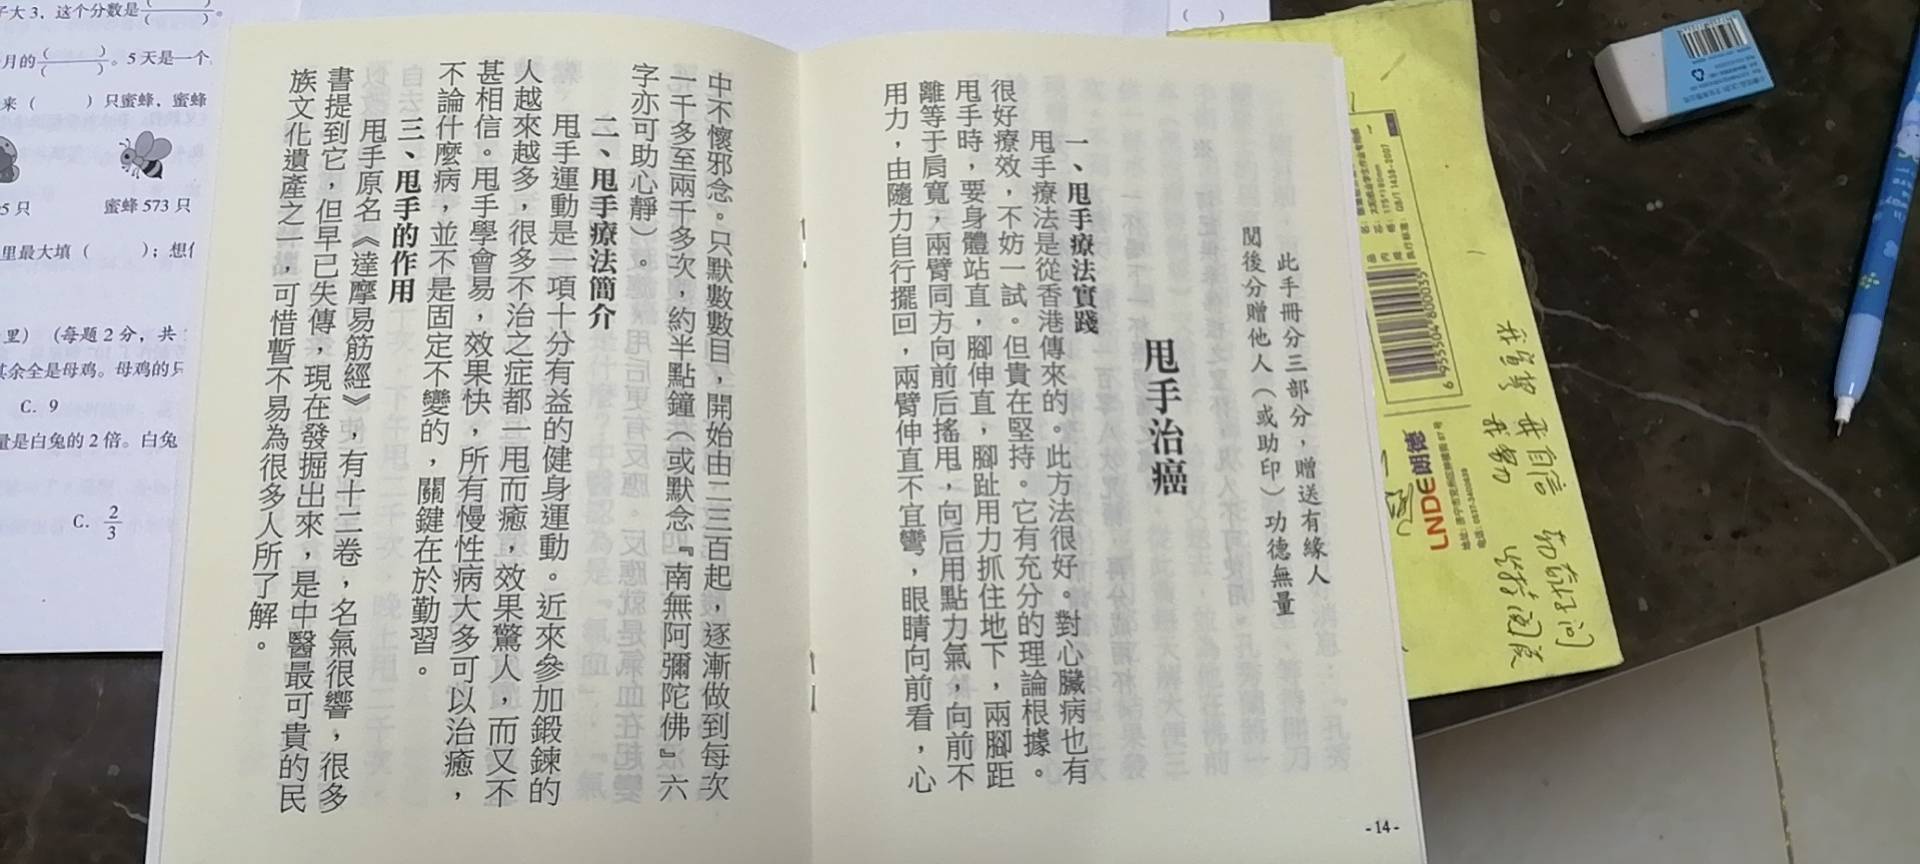 此手冊分三部分，贈送有緣人
閱後分贈他人（或助印）功德無量
甩手治癌
一、甩手療法實踐
甩手療法是從香港傳來的。此方法很好。對心臟病也有
很好療效，不妨一試。但貴在堅持。它有充分的理論根據。
甩手時，要身體站直，腳伸直，腳趾用力抓住地下，兩腳距
離等于肩寬，兩臂同方向前后搖甩，向后用點力氣，向前不
用力，由隨力自行擺回，兩臂伸直不宜彎，眼睛向前看，心
-14-
中不懷邪念。只默數數目，開始由二三百起，逐漸做到每次
一千多至兩千多次，約半點鐘（或默念『南無阿彌陀佛』六
字亦可助心靜）。
二、甩手療法簡介
甩手運動是一項十分有益的健身運動。近來參加鍛鍊的
人越來越多，很多不治之症都一甩而癒，效果驚人，而又不
甚相信。甩手學會易，效果快，所有慢性病大多可以治癒，
不論什麼病，並不是固定不變的，關鍵在於勤習。
三、甩手的作用
甩手原名《達摩易筋經》，有十二卷，名氣很響，很多
書提到它，但早已失傳，現在發掘出來，是中醫最可貴的民
族文化遺產之一，可惜暫不易為很多人所了解。
子大 3，这个分数是( )/( )。
月的( )/( )。5 天是一个
来（ ）只蜜蜂，蜜蜂
5 只 蜜蜂 573 只
里最大填（ ）；想
里）（每题 2 分，共
其余全是母鸡。母鸡的只
C. 9
量是白兔的 2 倍。白兔
C. 2/3
（ ）
175*180mm
6 955304 600035
LNDE朗德
我自信